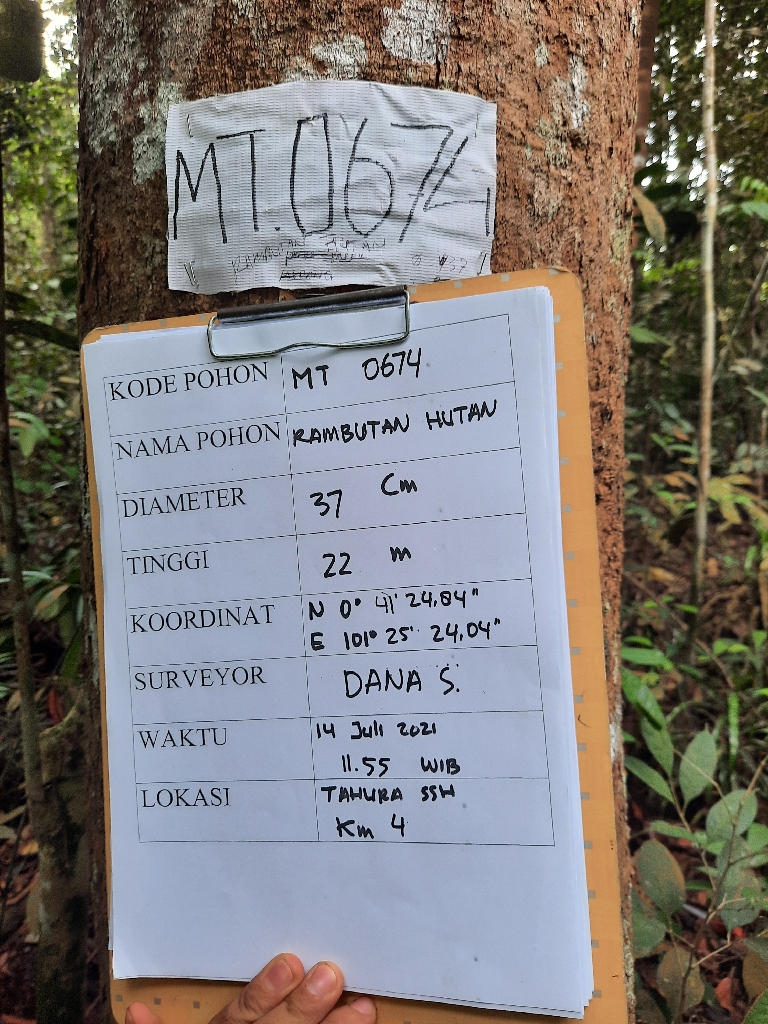 MT.0674
RAMBUTAN HUTAN
KODE POHON MT 0674
NAMA POHON RAMBUTAN HUTAN
DIAMETER 37 Cm
TINGGI 22 m
KOORDINAT N 0° 41' 24,84"
E 101° 25' 24,04"
SURVEYOR DANA S.
WAKTU 14 Juli 2021
11.55 WIB
LOKASI TAHURA SSH
Km 4